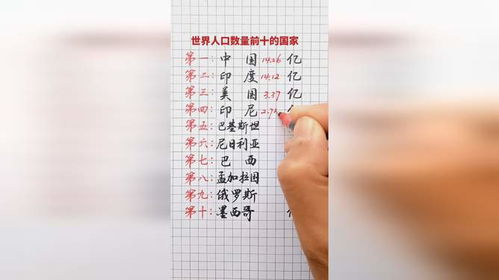 世界人口数量前十的国家
第一:中国 14.26 亿
第二:印度 14.12 亿
第三:美国 3.37 亿
第四:印尼 2.7
第五:巴基斯坦
第六:尼日利亚
第七:巴西
第八:孟加拉国
第九:俄罗斯
第十:墨西哥